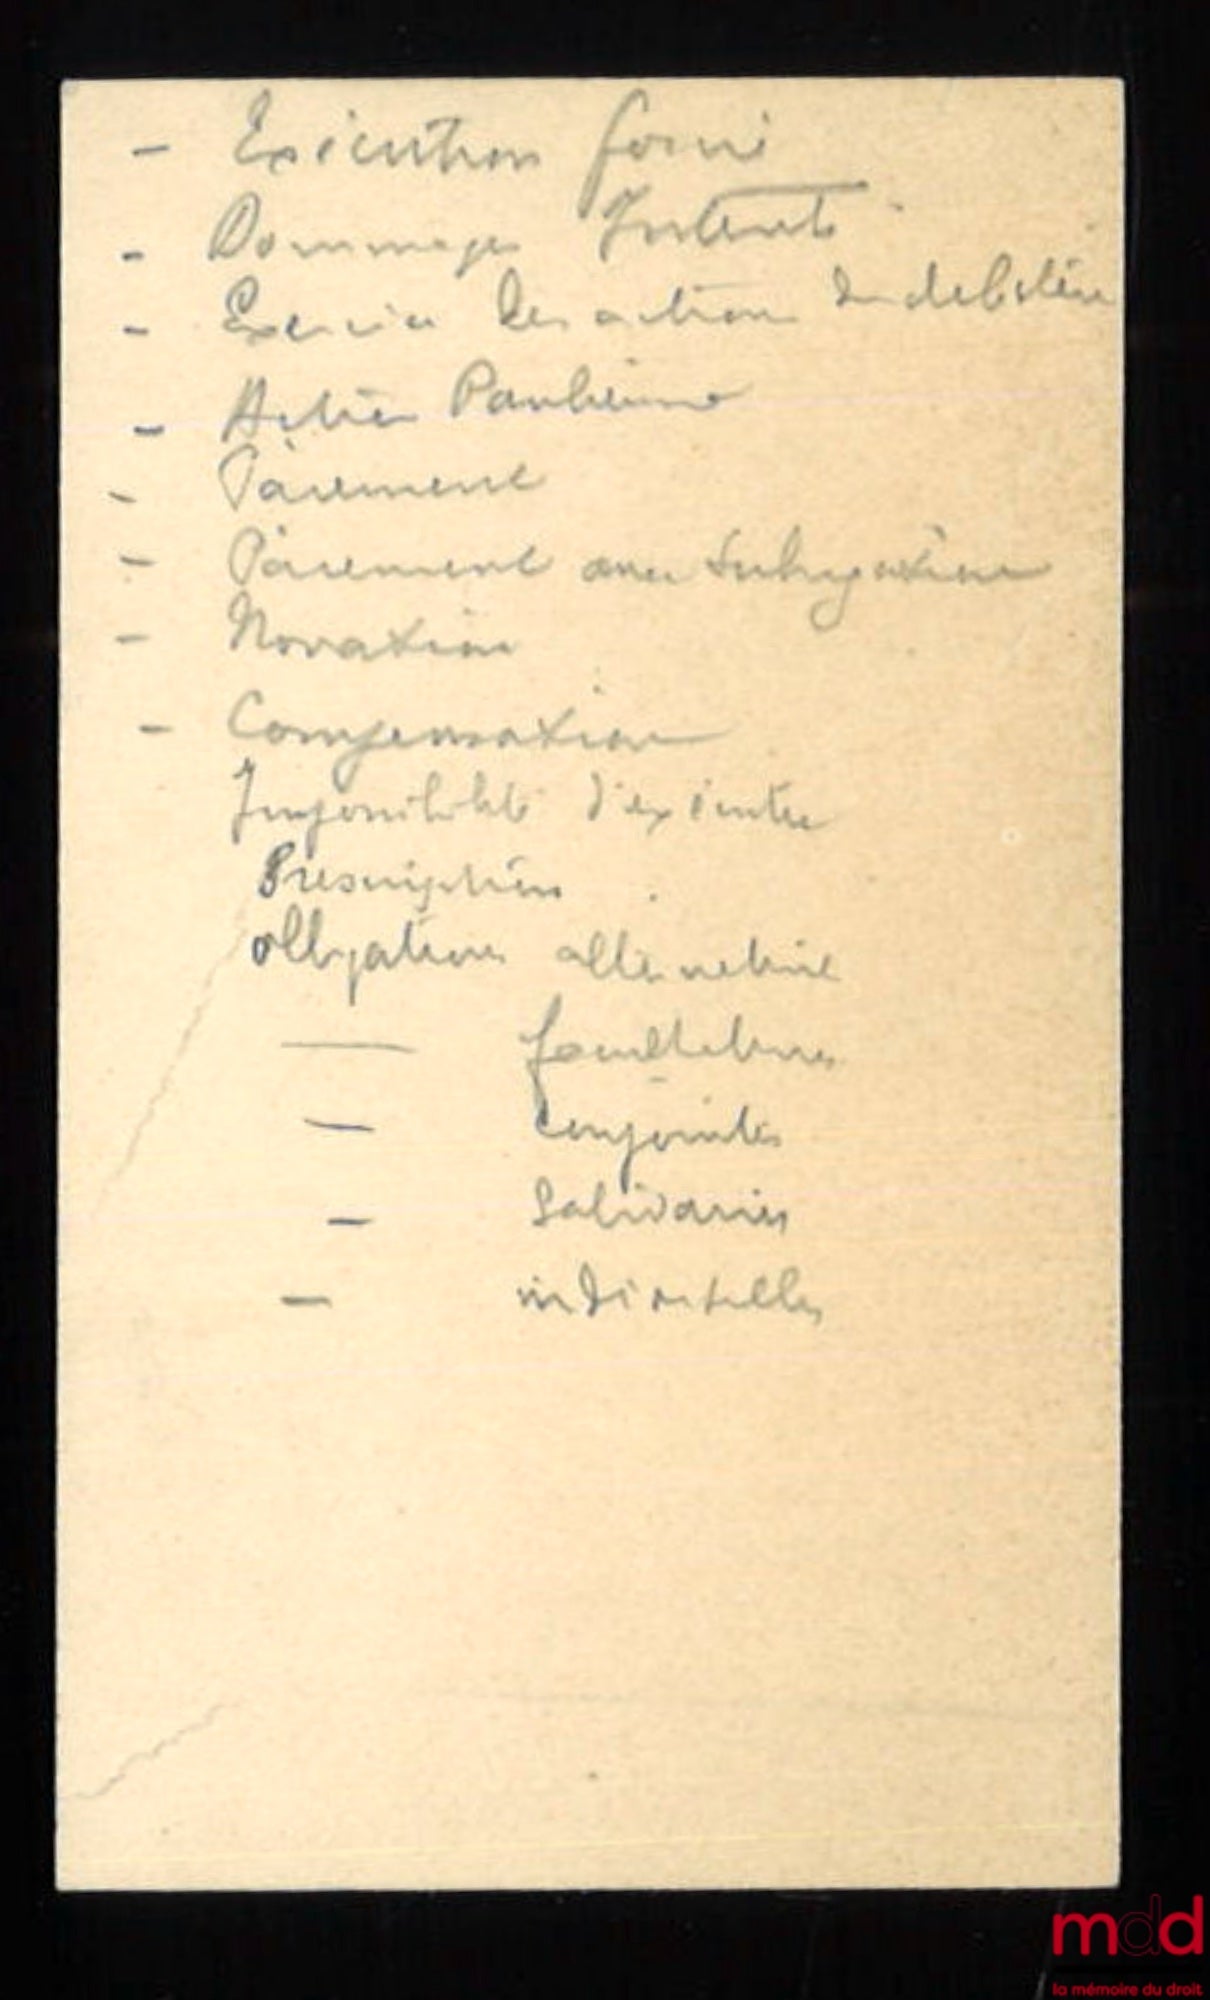 - Exécution forcée
- Dommages Intérêts
- Exercice des actions du débiteur
- Action Paulienne
- Paiement
- Paiement avec subrogation
- Novation
- Compensation
Impossibilité d'exécuter
Prescription
obligations alternative
— facultatives
— conjointes
— Solidaires
— indivisibles
mdd
la mémoire du droit